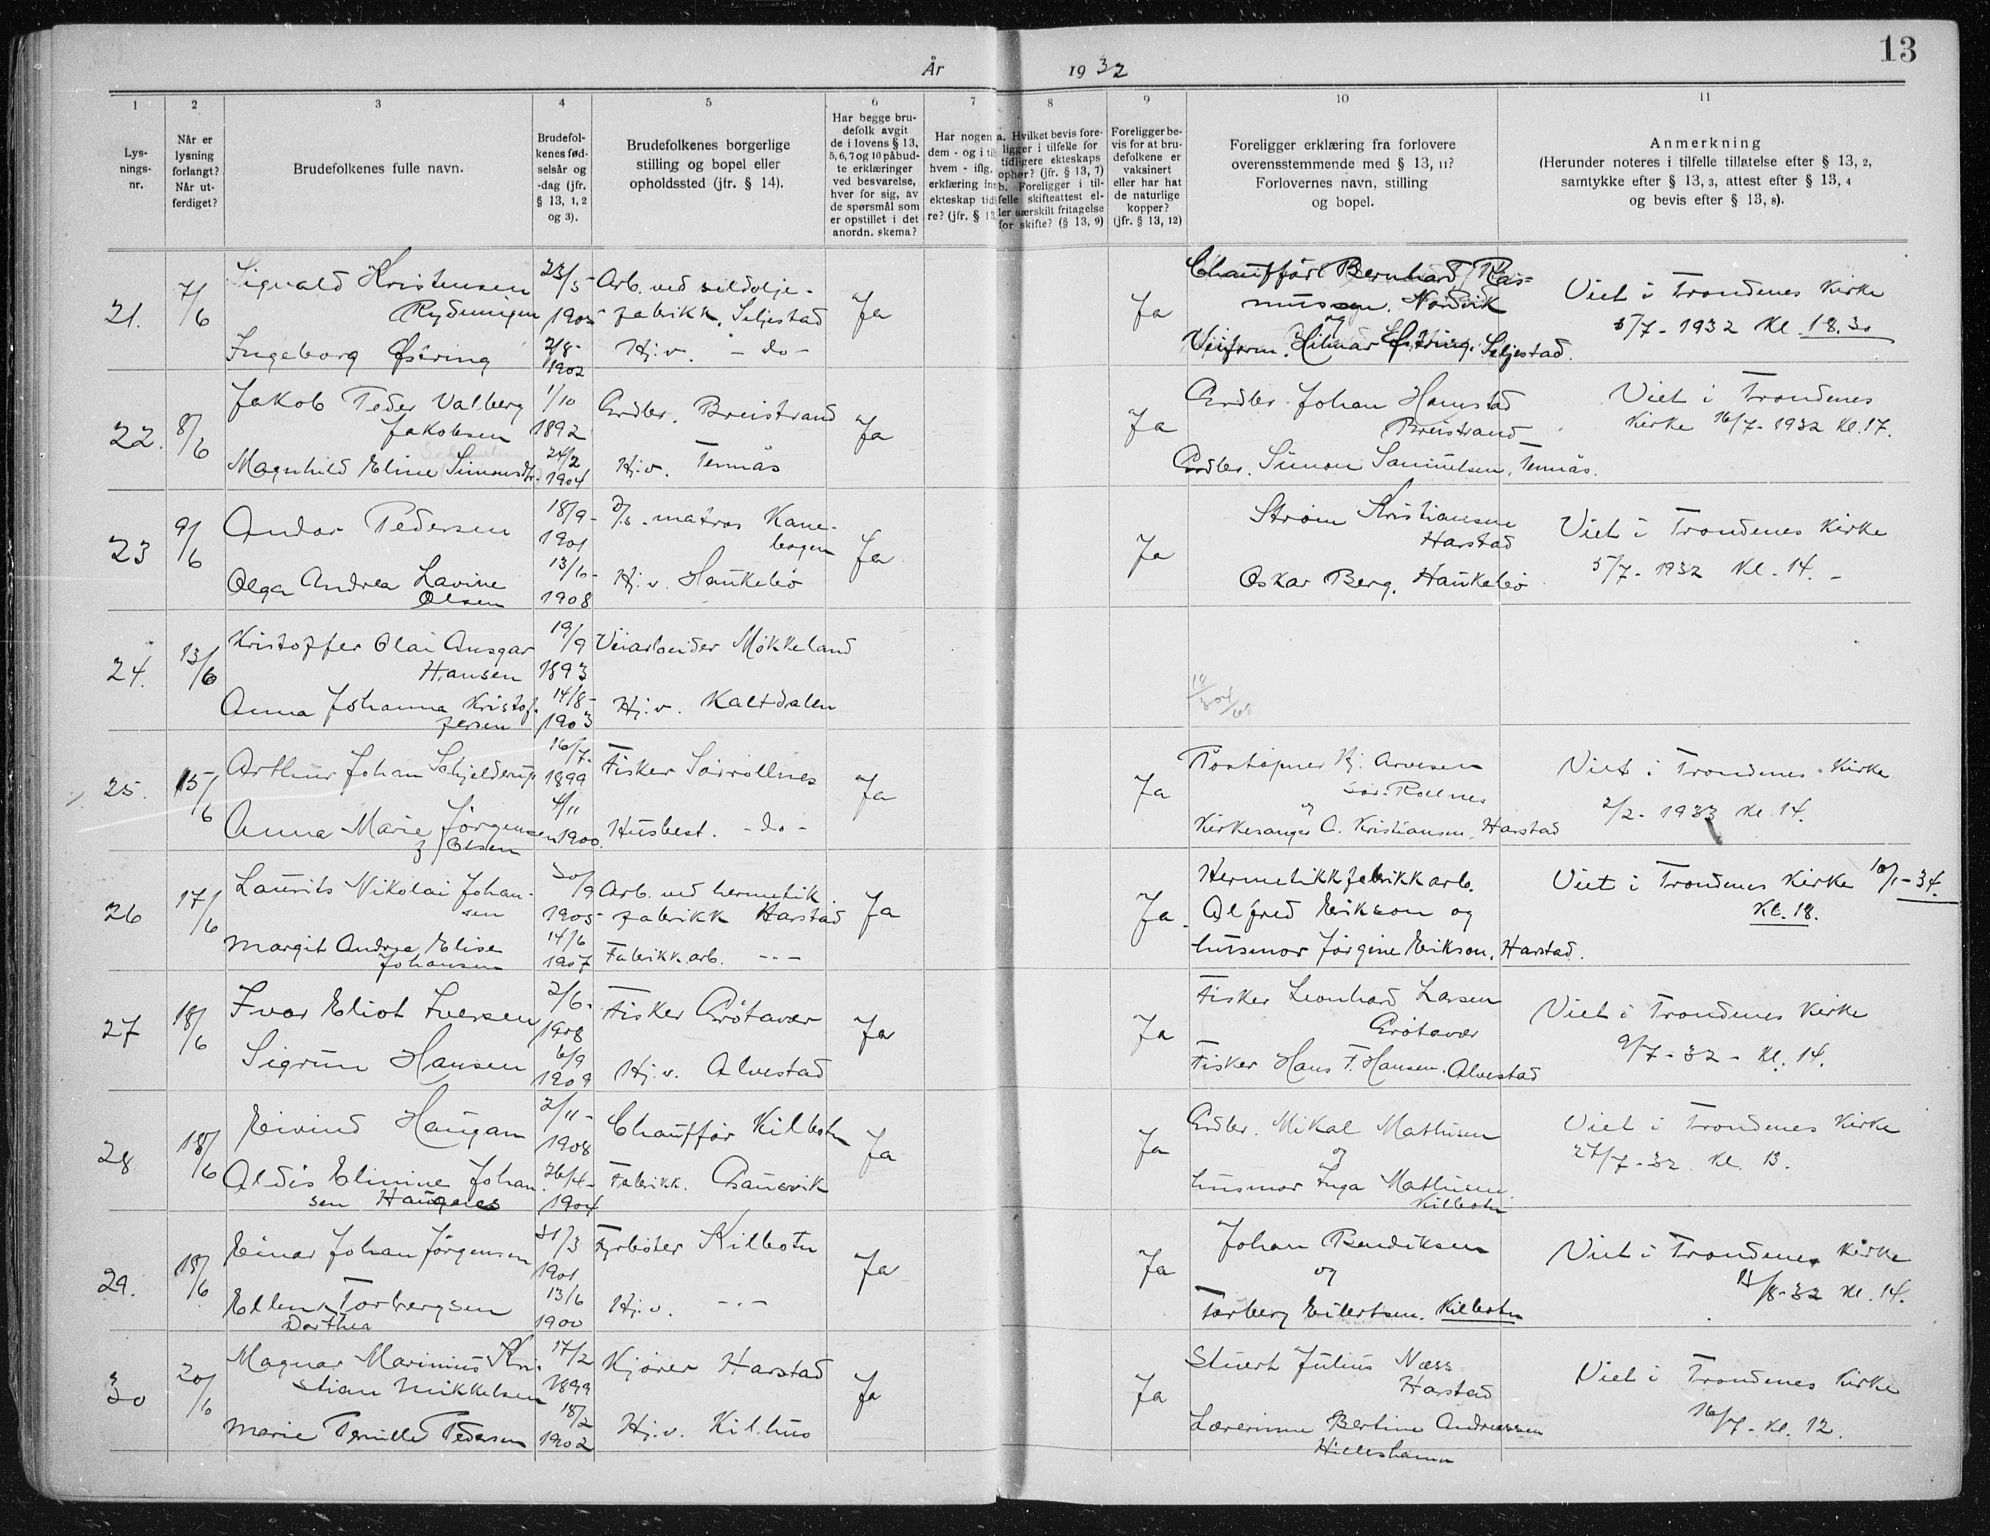 13
År 1932
1 2 3 4 5 6 7 8 9 10 11
Lys-
nings-
nr.
Når er
lysning
forlangt?
Når ut-
ferdiget?
Brudefolkenes fulle navn.
Brudefol-
kenes fød-
selsår og
-dag (jfr.
§ 13, 1, 2
og 3).
Brudefolkenes borgerlige
stilling og bopel eller
opholdssted (jfr. § 14).
Har begge bru-
defolk avgit
de i lovens § 13,
5, 6, 7 og 10 påbud-
te erklæringer
ved besvarelse,
hver for sig, av
de spørsmål som
er opstillet i det
anordn. skema?
Har nogen a
dem - og i til
hvem - iflg.
erklæring in
ekteskap tid
re? (jfr. § 13
a. Hvilket bevis fore-
ligger i tilfelle for
tidligere ekteskaps
ophør? (jfr. § 13, 7)
b. Foreligger i til-
felle skifteattest el-
ler særskilt fritagelse
for skifte? (§ 13, 9)
Foreligger be-
vis for at bru-
defolkene er
vaksinert
eller har hat
de naturlige
kopper?
(jfr. § 13, 12)
Foreligger erklæring fra forlovere
overensstemmende med § 13, 11?
Forlovernes navn, stilling
og bopel.
Anmerkning
(Herunder noteres i tilfelle tillatelse efter § 13, 2,
samtykke efter § 13, 3, attest efter § 13, 4
og bevis efter § 13, 8).
21. 7/6 Sigvald Kristensen 23/5- Arb. ved sildolje-
1905 fabrikk, Seljestad Ja Ja
Ingeborg Østring 2/8- 1902 Hj.v. - do -
Chauffør Bernhard Ras-
mussen. Nordvik
og
Veiform. Hilmar Østring. Seljestad.
Viet i Trondenes Kirke
5/7- 1932 Kl. 18.30
22. 8/6 Jakob Peder Valberg 1/10 Grdbr. Breistrand
Jakobsen 1892 Ja Ja
Magnhild Eline Simonsdtr. 24/2 1904 Hj.v. Tennås
Grdbr. Johan Hamstad
Breistrand
Grdbr. Simon Samuelsen, Tennås.
Viet i Trondenes
Kirke 16/7- 1932 Kl. 17.
23 9/6 Andor Pedersen 18/9- 1901 matros Kane-
bogen Ja Ja
Olga Andrea Lavine 13/10- Hj.v. Haukebø
Olsen 1908
Strøm Kristiansen
Harstad
Oskar Berg. Haukebø
Viet i Trondenes Kirke
5/7- 1932 Kl. 14. -
24. 13/6 Kristoffer Olai Ansgar 19/9 Veiarbeider Møkkeland
Hansen 1893
Anna Johanna Kristof- 14/8- Hj.v. Kaltdalen
fersen 1903
25. 15/6 Arthur Johan Schjelderup 16/7- 1899 Fisker Sørrollnes Ja Ja
Anna Marie Jørgensen 4/11 1900. Husbest. - do -
f/ Olsen
Postopner Kj. Arvesen
Sør-Rollnes
og
Kirkesanger O. Kristiansen, Harstad
Viet i Trondenes Kirke
2/2- 1933 Kl. 14.
26 17/6 Laurits Nikolai Johan- 30/9 Arb. ved hermetik
sen 1905- fabrikk Harstad Ja Ja
Margit Andrea Elise 14/6 Fabrikkarb. - - -
Johansen 1907
Hermetikkfabrikkarb.
Alfred Erikson og
husmor Jørgine Erikson, Harstad.
Viet i Trondenes Kirke 10/1-34.
Kl. 18.
27 18/6 Ivar Eliot Iversen 2/6- 1908 Fisker Grøtavær Ja Ja
Sigrun Hansen 6/9 1909 Hj.v. Alvestad
Fisker Leonhard Larsen
Grøtavær
Fisker Hans F. Hansen. Alvestad
Viet i Trondenes Kirke
9/7- 32 - Kl. 14.
28 18/6 Eivind Haugan 2/11- 1908 Chauffør Kilbotn Ja Ja
Aldis Elimine Johan 26/4- Fabrikk. Gansvik
sen Haugenes 1904
Grdbr. Mikal Mathisen
og
husmor Inga Mathisen
Kilbotn
Viet i Trondenes Kirke
27/7- 32. Kl. 13.
29. 18/6 Einar Johan Jørgensen 31/3 1901 Fyrbøter Kilbotn Ja Ja
Ellen Torbergsen 13/6 Hj.v. - - -
Dorthea 1900
Johan Bendiksen
og
Torberg Eilertsen. Kilbotn
Viet i Trondenes Kirke
/8-32 Kl. 14.
30 20/6 Magnar Marinius Kri- 17/2 Kjører Harstad
stian Mikkelsen 1899 Ja Ja
Marie Pernille Pedersen 18/2 1902 Hj.v. Kilhus
Stuert Julius Næss
Harstad
Lærerinne Bertine Andreassen
Hilleshamn
Viet i Trondenes Kirke
16/7- Kl. 12.